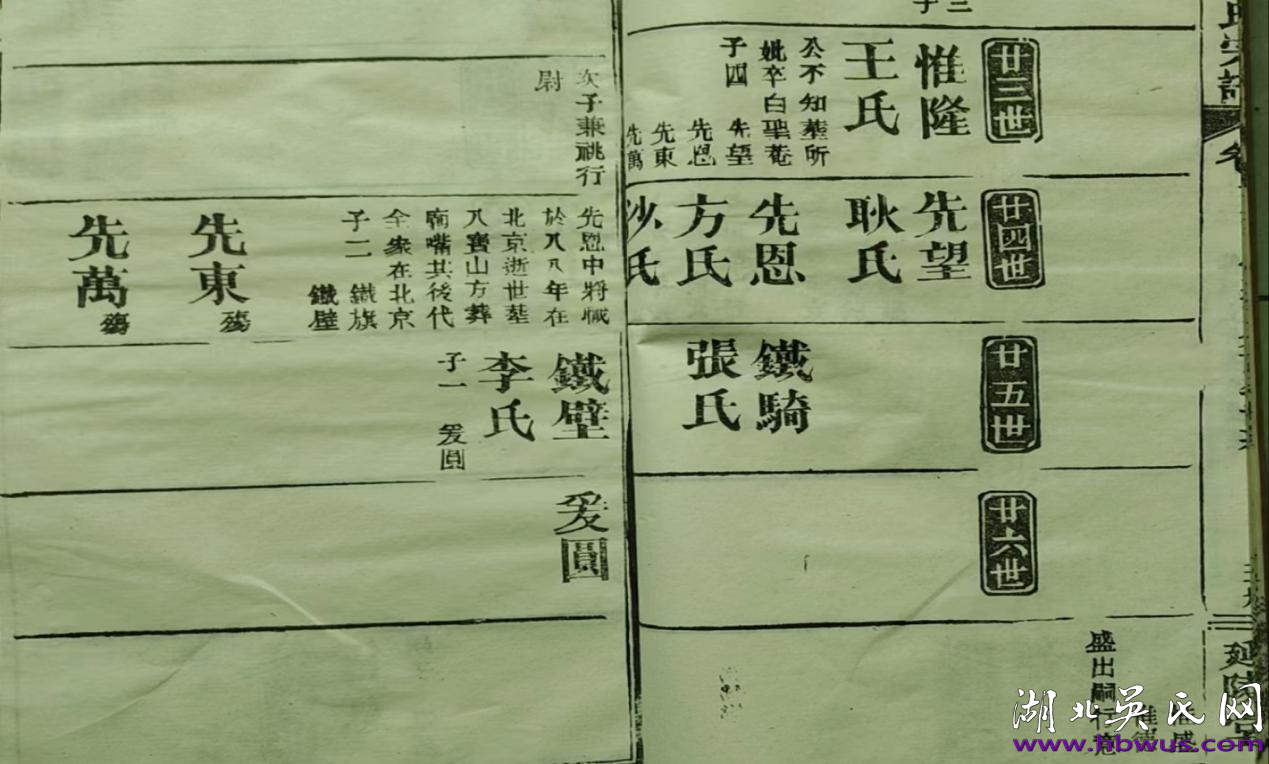 廿三世
惟隆
王氏
公不知葬所
妣卒白聖菴
子四 先望
先恩
先東
先萬
次子兼祧行
尉
廿四世
先望
耿氏
先恩
方氏
沙氏
先恩中將職
於八八年在
北京逝世墓
八寶山方葬
廟嘴其後代
全衆在北京
子二 鐵旗
鐵壁
先東 殤
先萬 殤
廿五世
鐵騎
張氏
鐵壁
李氏
子一 爰圓
廿六世
爰圓
盛出嗣行
延陵
湖北吳氏网
www.hbwus.com